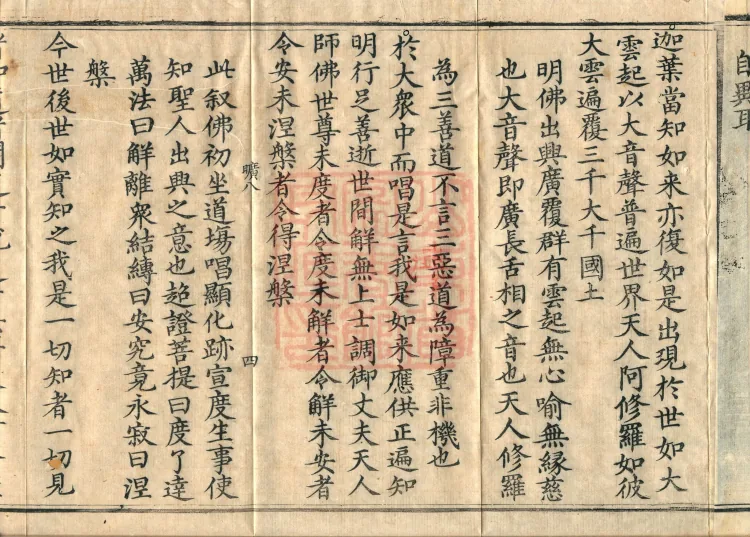 迦葉當知如来亦復如是出現於世如大
雲起以大音聲普遍世界天人阿修羅如彼
大雲遍覆三千大千國土
明佛出興廣覆群有雲起無心喻無緣慈
也大音聲即廣長舌相之音也天人修羅
為三善道不言三惡道為障重非機也
於大衆中而唱是言我是如来應供正遍知
明行足善逝世間解無上士調御丈夫天人
師佛世尊未度者令度未解者令解未安者
令安未涅槃者令得涅槃
曠八
四
此叙佛初坐道場唱顯化跡宣度生事使
知聖人出興之意也超證菩提曰度了達
萬法曰解離衆結縛曰安究竟永寂曰涅
槃
今世後世如實知之我是一切知者一切見